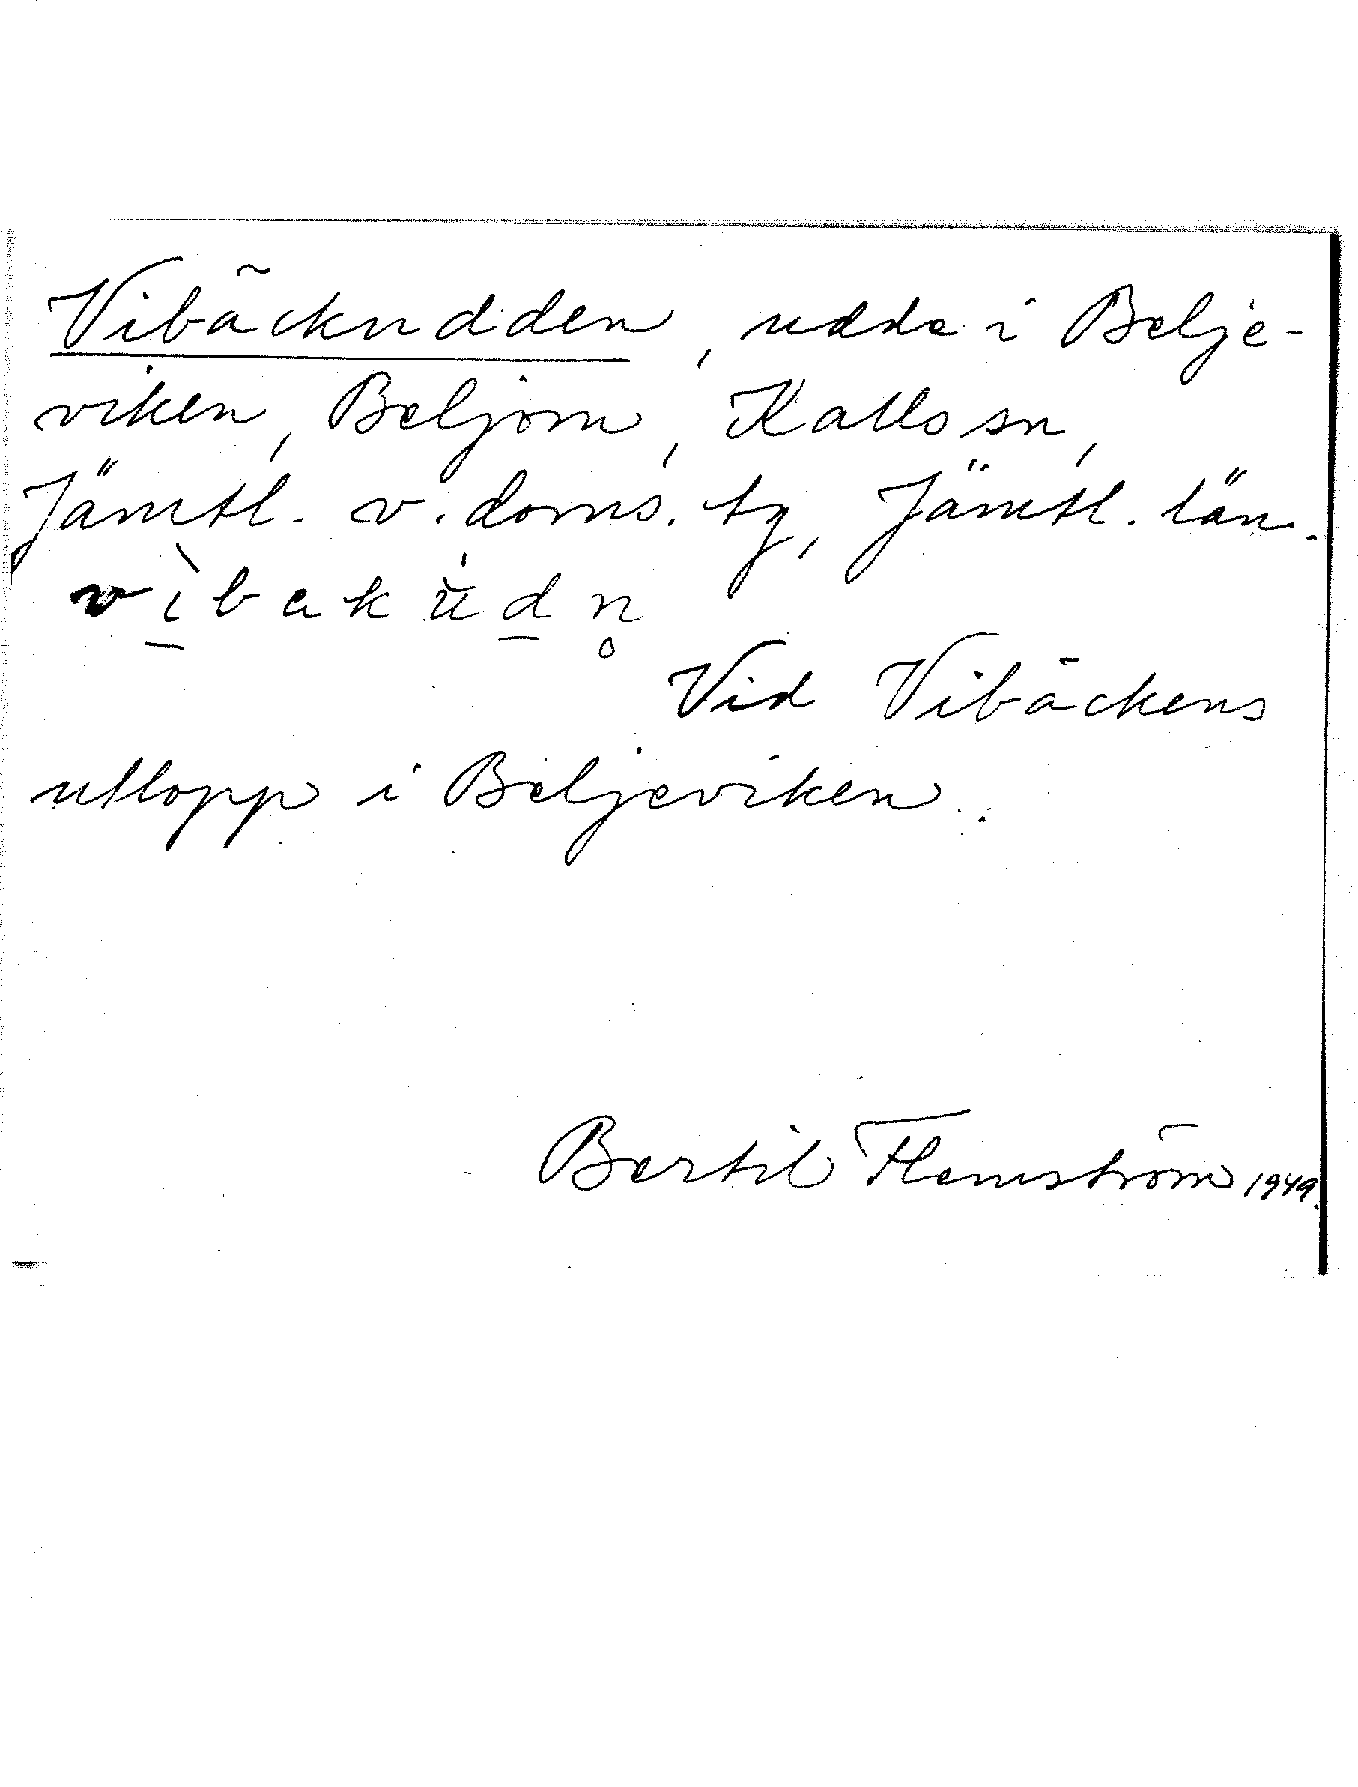 Vibäckudden, udde i Belje-
viken, Beljom, Kalls sn,
Jämtl. v. doms. tg, Jämtl. län.
vìbakùdn̥
Vid Vibäckens
utlopp i Beljeviken.
Bertil Flemström 1949.